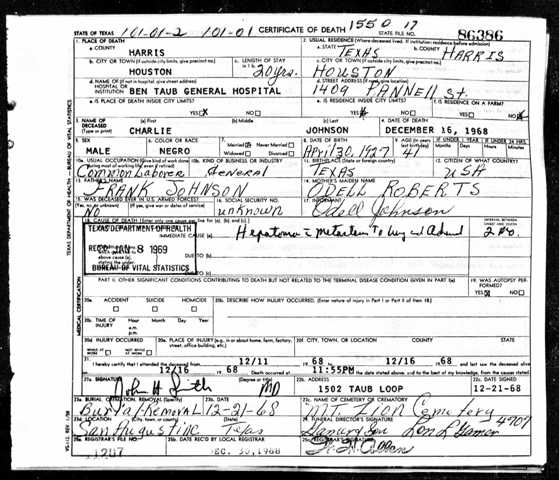 STATE OF TEXAS 101-01-2 101-01 CERTIFICATE OF DEATH 1550 17 STATE FILE NO. 86386
1. PLACE OF DEATH 2. USUAL RESIDENCE (Where deceased lived. If institution: residence before admission)
a. COUNTY HARRIS a. STATE TEXAS b. COUNTY HARRIS
b. CITY OR TOWN (If outside city limits, give precinct no.) c. LENGTH OF STAY c. CITY OR TOWN (If outside city limits, give precinct no.)
HOUSTON 20 yrs. HOUSTON
d. NAME OF (If not in hospital, give street address) HOSPITAL OR INSTITUTION BEN TAUB GENERAL HOSPITAL d. STREET ADDRESS (If rural, give location) 1409 PANNELL St.
e. IS PLACE OF DEATH INSIDE CITY LIMITS? YES NO e. IS RESIDENCE INSIDE CITY LIMITS? YES NO f. IS RESIDENCE ON A FARM? YES NO
3. NAME OF DECEASED (Type or print) (a) First (b) Middle (c) Last 4. DATE OF DEATH
CHARLIE JOHNSON DECEMBER 16, 1968
5. SEX 6. COLOR OR RACE 7. Married Never Married Widowed Divorced 8. DATE OF BIRTH 9. AGE
MALE NEGRO APril 30, 1927 41
10a. USUAL OCCUPATION (Give kind of work done) 10b. KIND OF BUSINESS OR INDUSTRY 11. BIRTHPLACE (State or foreign country) 12. CITIZEN OF WHAT COUNTRY?
Common Laborer General TEXAS USA
13. FATHER'S NAME 14. MOTHER'S MAIDEN NAME
FRANK JOHNSON ODELL ROBERTS
15. WAS DECEASED EVER IN U.S. ARMED FORCES? 16. SOCIAL SECURITY NO. 17. INFORMANT
NO unknown Odell Johnson
18. CAUSE OF DEATH INTERVAL BETWEEN ONSET AND DEATH
TEXAS DEPARTMENT OF HEALTH IMMEDIATE CAUSE (a) Hepatoma
REC'D JAN 8 1969 DUE TO (b)
BUREAU OF VITAL STATISTICS DUE TO (c)
PART II. OTHER SIGNIFICANT CONDITIONS CONTRIBUTING TO DEATH BUT NOT RELATED TO THE TERMINAL DISEASE CONDITION GIVEN IN PART I(a) 19. WAS AUTOPSY PERFORMED? YES NO
20a. ACCIDENT SUICIDE HOMICIDE 20b. DESCRIBE HOW INJURY OCCURRED. (Enter nature of injury in Part I or Part II of Item 18.)
20c. TIME OF INJURY Hour a.m. p.m. Month Day Year
20d. INJURY OCCURRED WHILE AT WORK NOT WHILE AT WORK 20e. PLACE OF INJURY (e.g., in or about home, farm, factory, street, office building, etc.) 20f. CITY, TOWN, OR LOCATION COUNTY STATE
21. I hereby certify that I attended the deceased from 12/11 68 to 12/16 68 and last saw the deceased alive
12/16 68 Death occurred at 11:55PM the date stated above, and to the best of my knowledge, from the causes stated.
22a. SIGNATURE (Degree or title) 22b. ADDRESS 22c. DATE SIGNED
John H. Smith MD 1502 TAUB LOOP 12-21-68
23a. BURIAL, CREMATION, REMOVAL (Specify) 23b. DATE 23c. NAME OF CEMETERY OR CREMATORY
Burial-Removal 12-21-68 MT ZION Cemetery
23d. LOCATION (City, town, or county) (State) 24. FUNERAL DIRECTOR'S SIGNATURE
San Augustine Texas 4707
25a. REGISTRAR'S FILE NO. 25b. DATE REC'D BY LOCAL REGISTRAR 25c. REGISTRAR'S SIGNATURE
DEC. 30, 1968
TEXAS DEPARTMENT OF HEALTH — BUREAU OF VITAL STATISTICS
MEDICAL CERTIFICATION